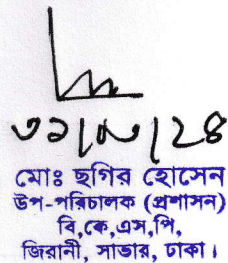 মোঃ ছগির হোসেন
উপ-পরিচালক (প্রশাসন)
বি,কে,এস,পি,
জিরানী, সাভার, ঢাকা।